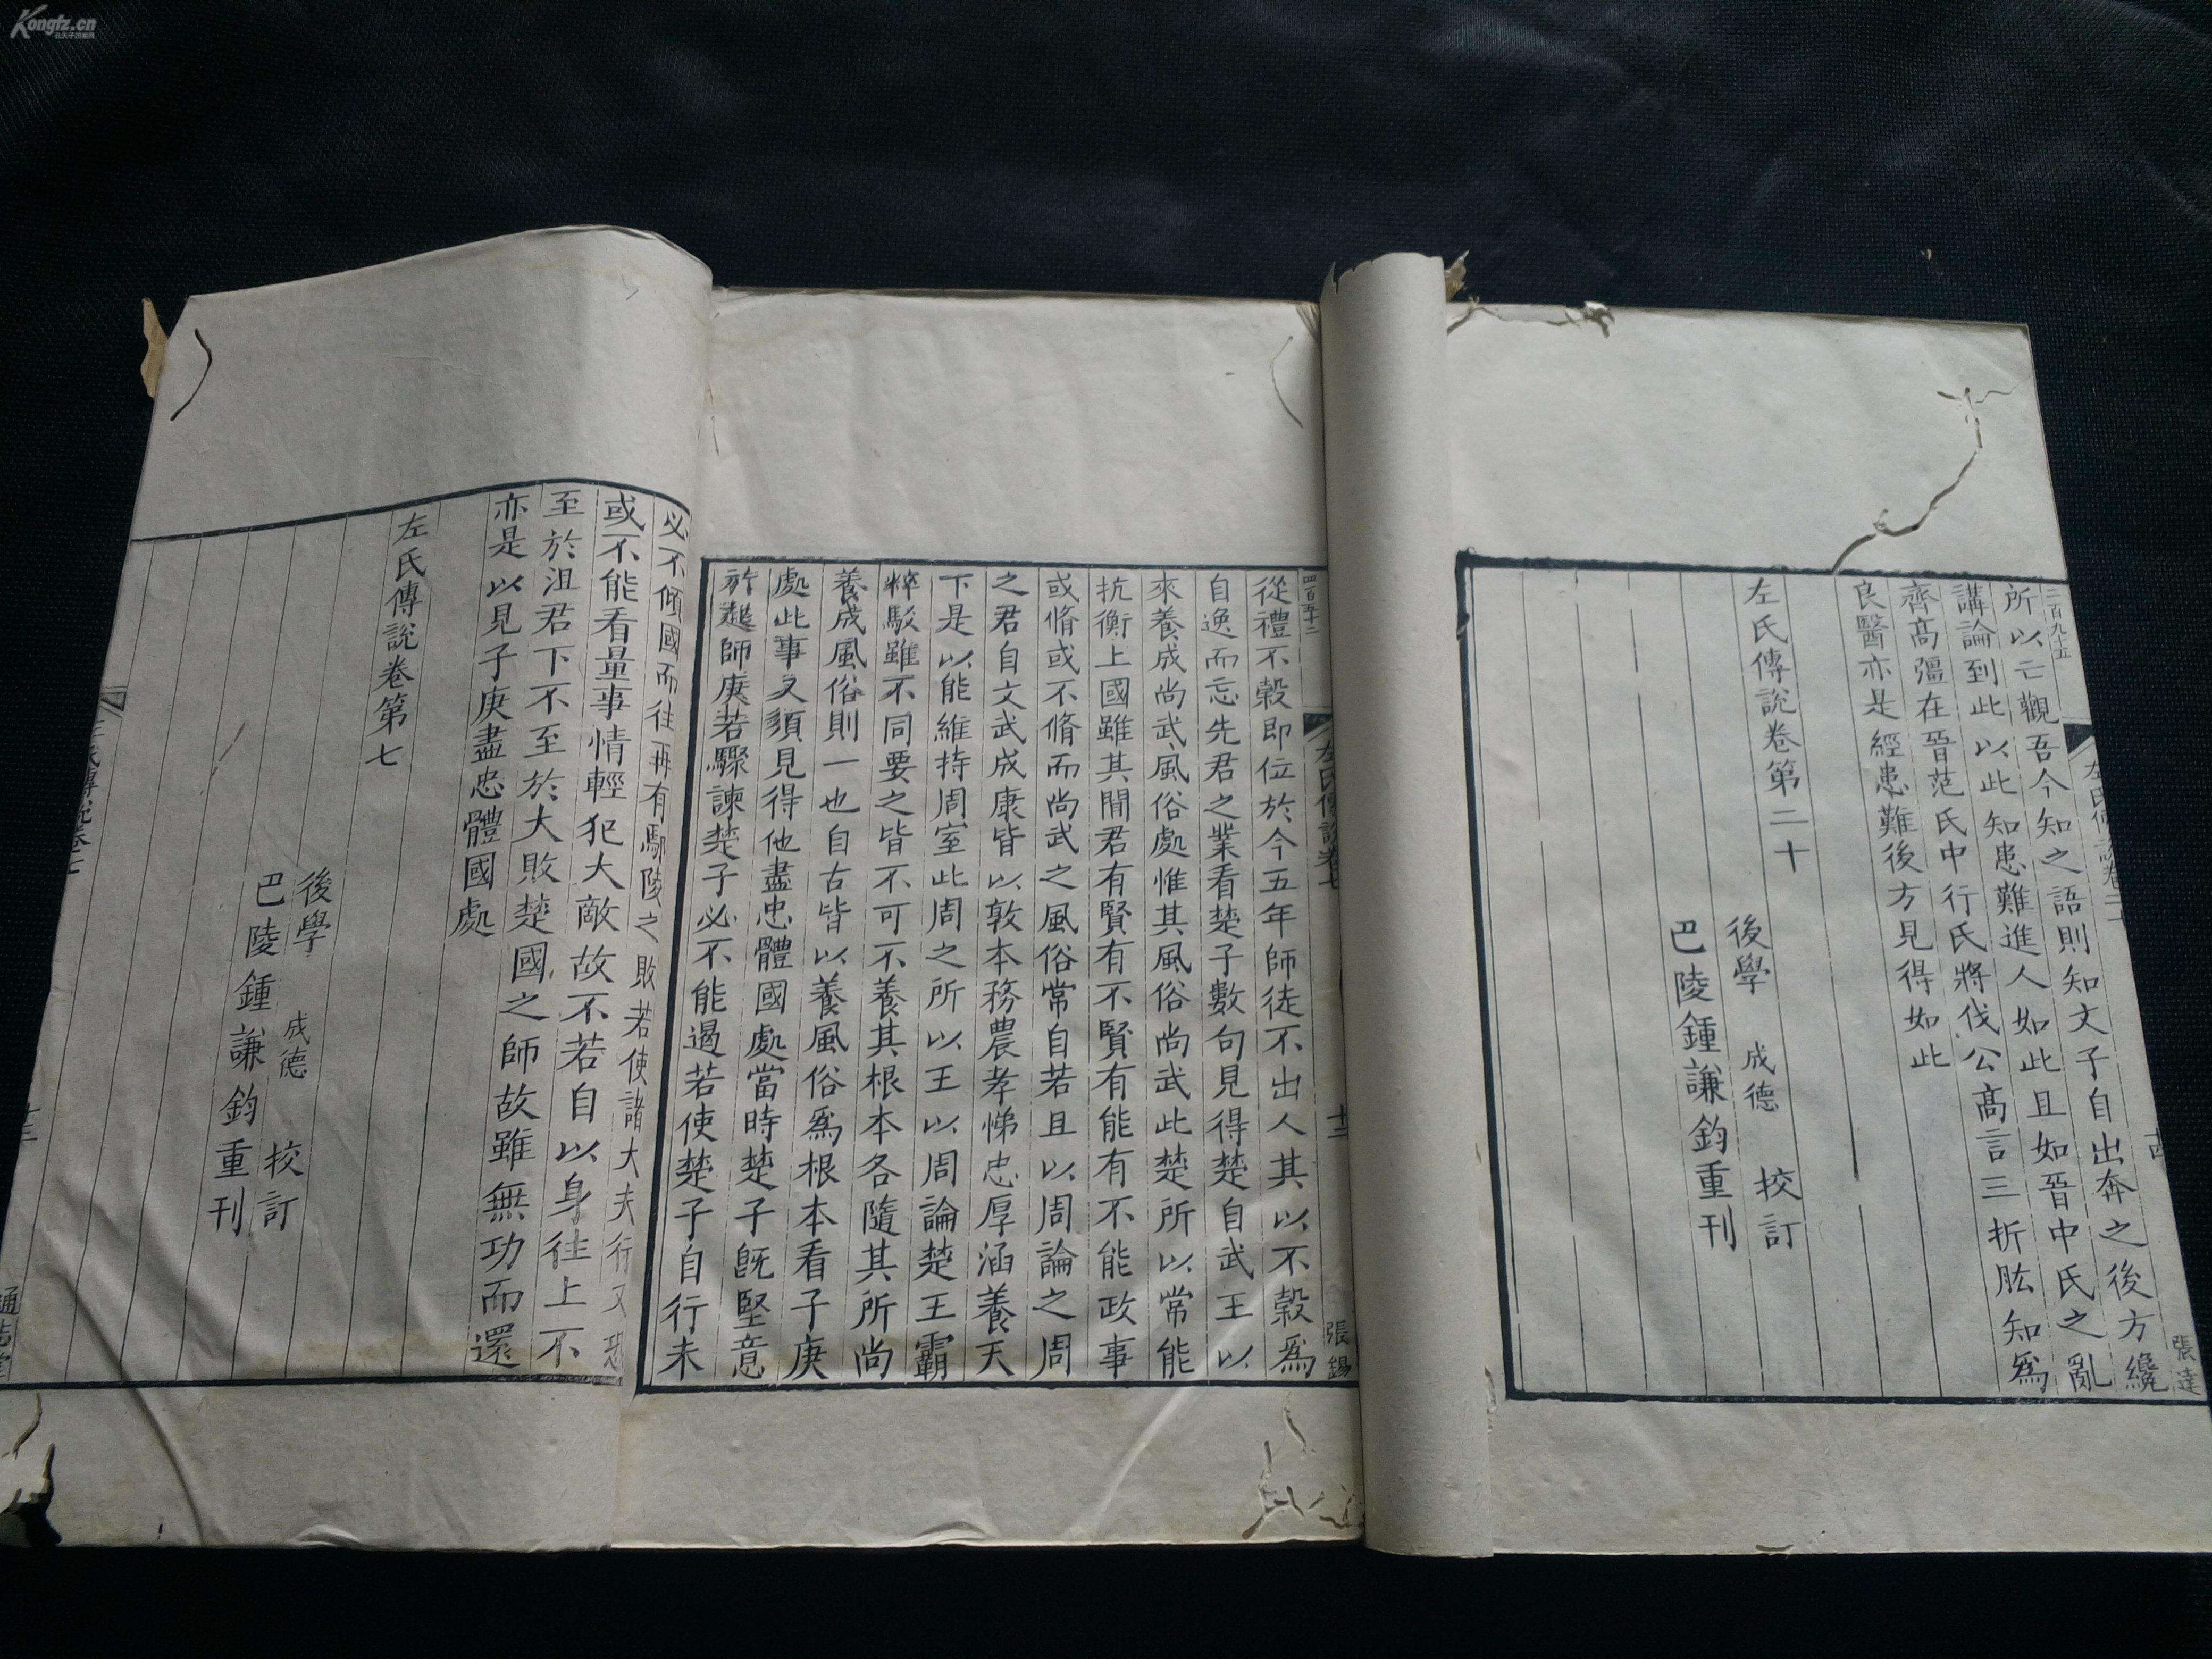 Kongfz.cn
孔夫子旧书网
二百九十五
左氏傳說卷二十
張達
所以亡觀吾今知之語則知文子自出奔之後方纔
講論到此以此知患難進人如此且如晉中氏之亂
齊高彊在晉范氏中行氏將伐公高言三折肱知爲
良醫亦是經患難後方見得如此
左氏傳說卷第二十
後學 成德 挍訂
巴陵鍾謙鈞重刊
四百五十二
左氏傳說卷七
十二
張錫
從禮不穀即位於今五年師徒不出人其以不穀爲
自逸而忘先君之業看楚子數句見得楚自武王以
來養成尚武風俗處惟其風俗尚武此楚所以常能
抗衡上國雖其閒君有賢有不賢有能有不能政事
或脩或不脩而尚武之風俗常自若且以周論之周
之君自文武成康皆以敦本務農孝悌忠厚涵養天
下是以能維持周室此周之所以王以周論楚王霸
粹駁雖不同要之皆不可不養其根本各隨其所尚
養成風俗則一也自古皆以養風俗爲根本看子庚
處此事又須見得他盡忠體國處當時楚子旣堅意
於起師庚若驟諫楚子必不能遏若使楚子自行未
必不傾國而往再有鄢陵之敗若使諸大夫行又恐
或不能看量事情輕犯大敵故不若自以身往上不
至於沮君下不至於大敗楚國之師故雖無功而還
亦是以見子庚盡忠體國處
左氏傳說卷第七
後學 成德 挍訂
巴陵鍾謙鈞重刊
左氏傳說卷七
十三
通志堂